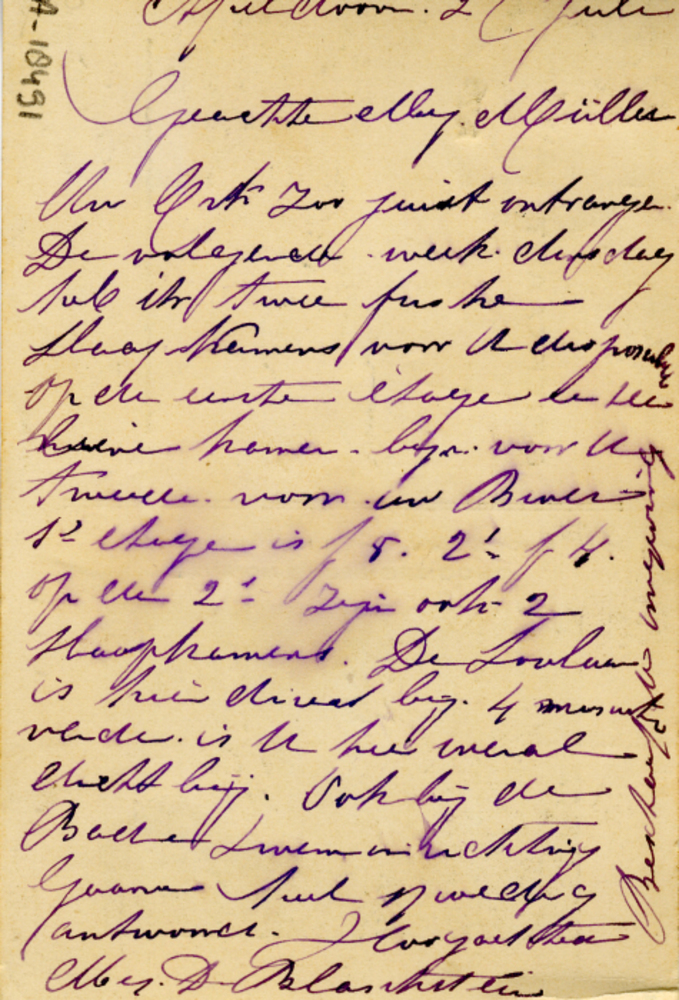 Apeldoorn. 2 Juli
Geachte Mej. Müller
Uw Brfk zoo juist ontvangen.
De volgende week. dinsdag
heb ik twee frissche
slaapkamers voor U disponible
op de eerste étage en een
kleine kamer. bijv. voor U
tweede. voor uw Broer
1e etage is f 5. 2e f 4.
op de 2e zijn ook 2
slaapkamers. De Loolaan
is hier dicht bij. 4 minuten
verder. is U hier overal
dicht bij. Ook bij de
Bad en Zweminrichting
Gaarne heel spoedig
antwoord. Hoogachtend
Mej. D Blaschstein
Beschaafde omgeving
A-10491